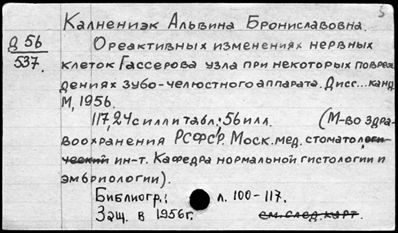 5
Калнениэк Альвина Брониславовна.
Д 56
537.
О реактивных изменениях нервных
клеток Гассерова узла при некоторых повреж
дениях зубо-челюстного аппарата. Дисс... канд.
М, 1956.
117, 24с илл и табл.; 56 илл. (М-во здра-
воохранения РСФСР. Моск. мед. стоматологи-
ческий ин-т. Кафедра нормальной гистологии и
эмбриологии).
Библиогр.: л. 100-117.
Защ. в 1956г. см. след. карт.